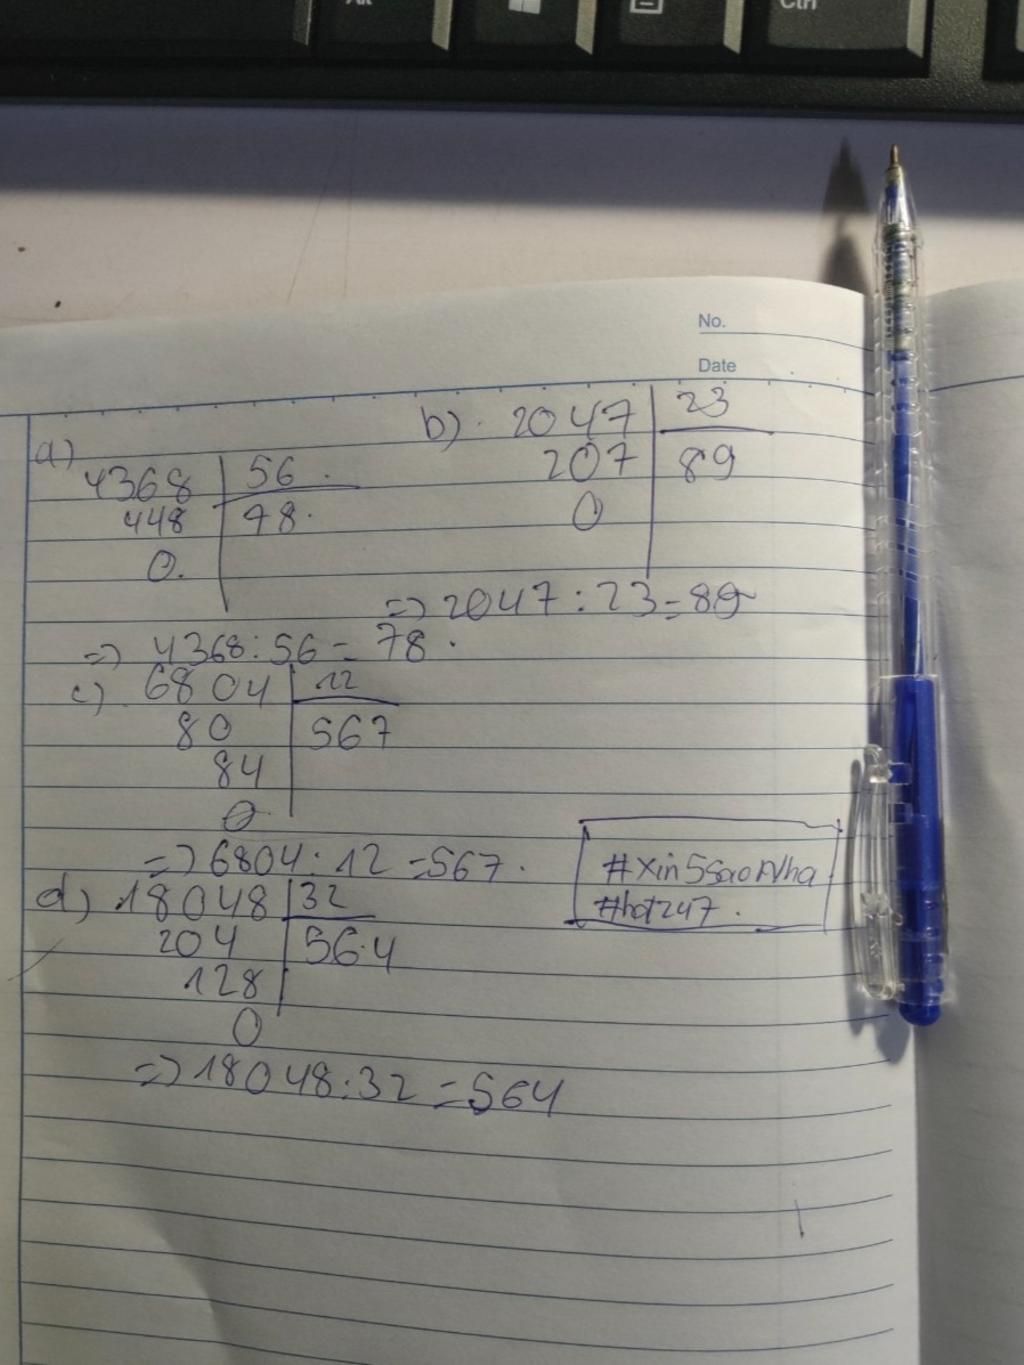 Alt
Ctrl
No.
Date
a)
4368 56
448 78.
0.
b). 2047 23
207 89
0
=> 2047:23=89
=> 4368:56=78.
c) 6804 12
80 567
84
0
=> 6804:12=567.
#Xin5SaoNha
#hot247.
d) 18048 32
204 564
128
0
=> 18048:32=564